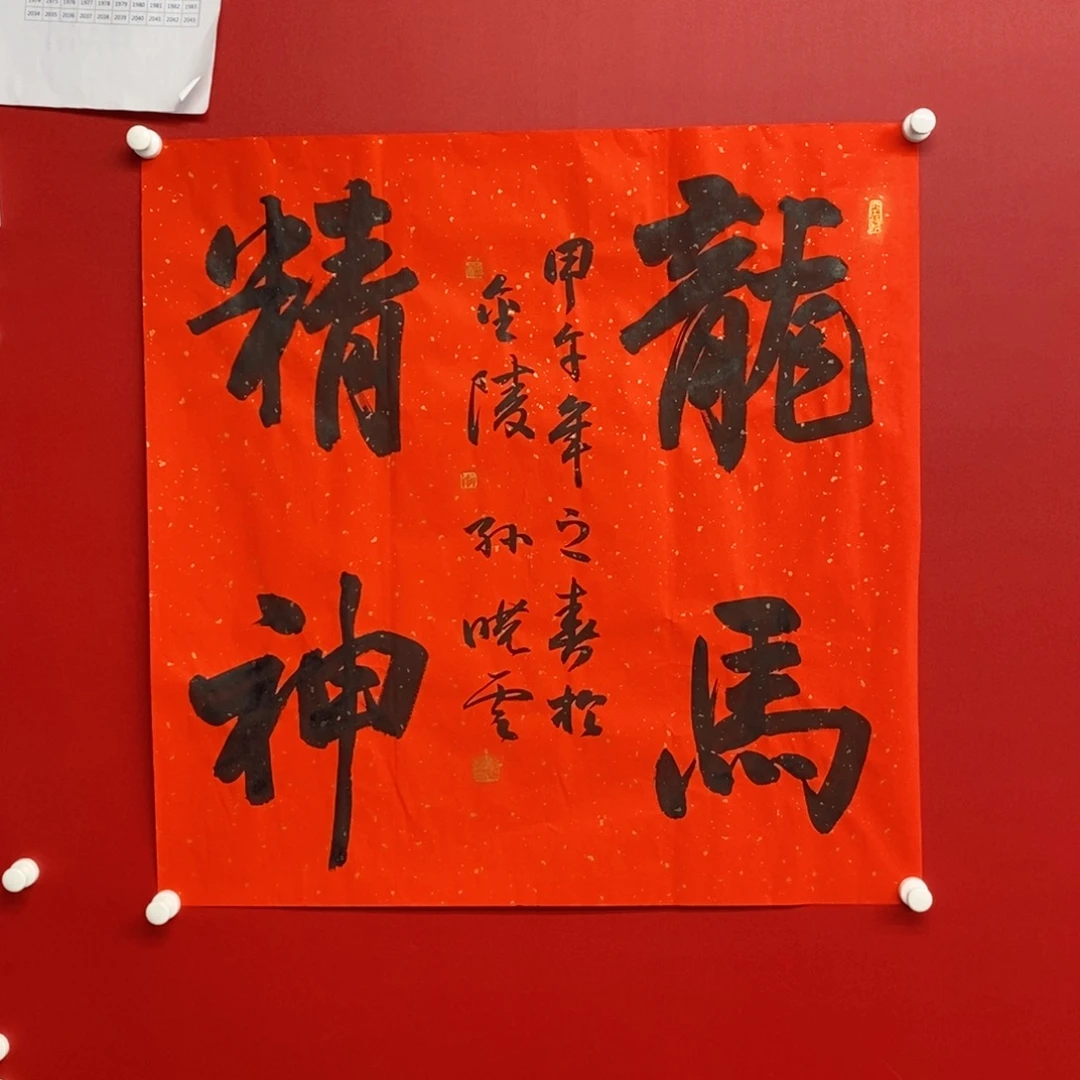 龍馬
甲午年之春於
金陵孙晓云
精神
1974 1975 1976 1977 1978 1979 1980 1981 1982 1983
2034 2035 2036 2037 2038 2039 2040 2041 2042 2043